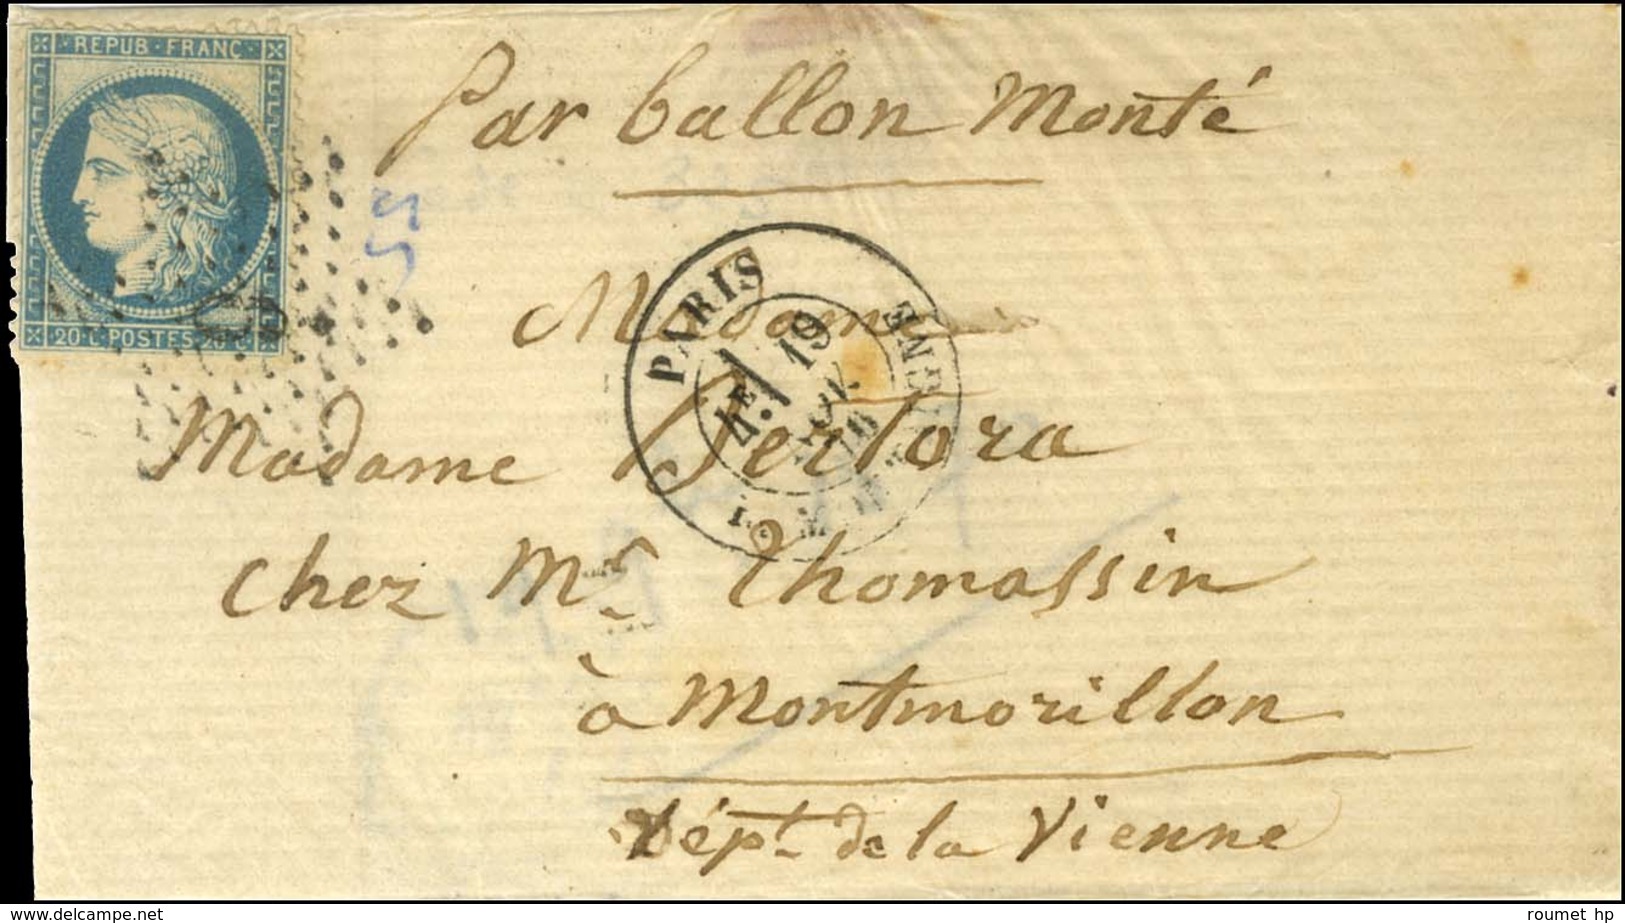 REPUB·FRANC
20·C·POSTES·20·C
Par ballon Monté
55
Madame
PARIS
4E 19
NOV.
Madame Bertora
chez Mr. Thomassin
à Montmorillon
Dépt. de la Vienne
www.delcampe.net
roumet hp